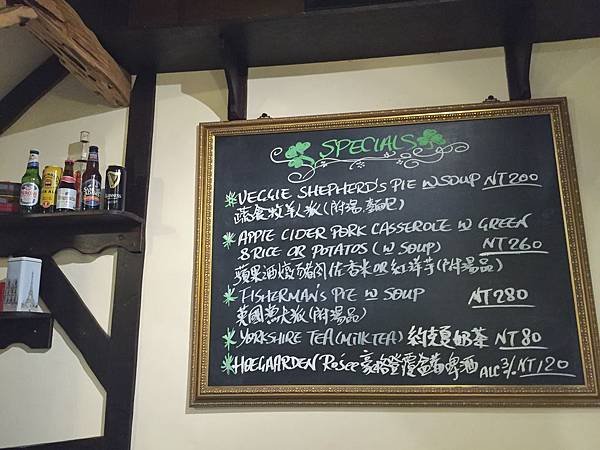 SPECIALS
VEGGIE SHEPHERD'S PIE W SOUP NT200
蔬食牧羊人派(附湯,
APPLE CIDER PORK CASSEROLE W GREEN
& RICE OR POTATOS (W SOUP) NT260
蘋果酒燉豬肉佐香米OR紅洋芋(附湯品)
FISHERMAN'S PIE W SOUP NT280
英國漁夫派(附湯品)
YORKSHIRE TEA (MILK TEA) 約克夏奶茶 NT80
HOEGAARDEN Rosée 豪格登覆盆莓啤酒 ALC 3% NT120
GUINNESS